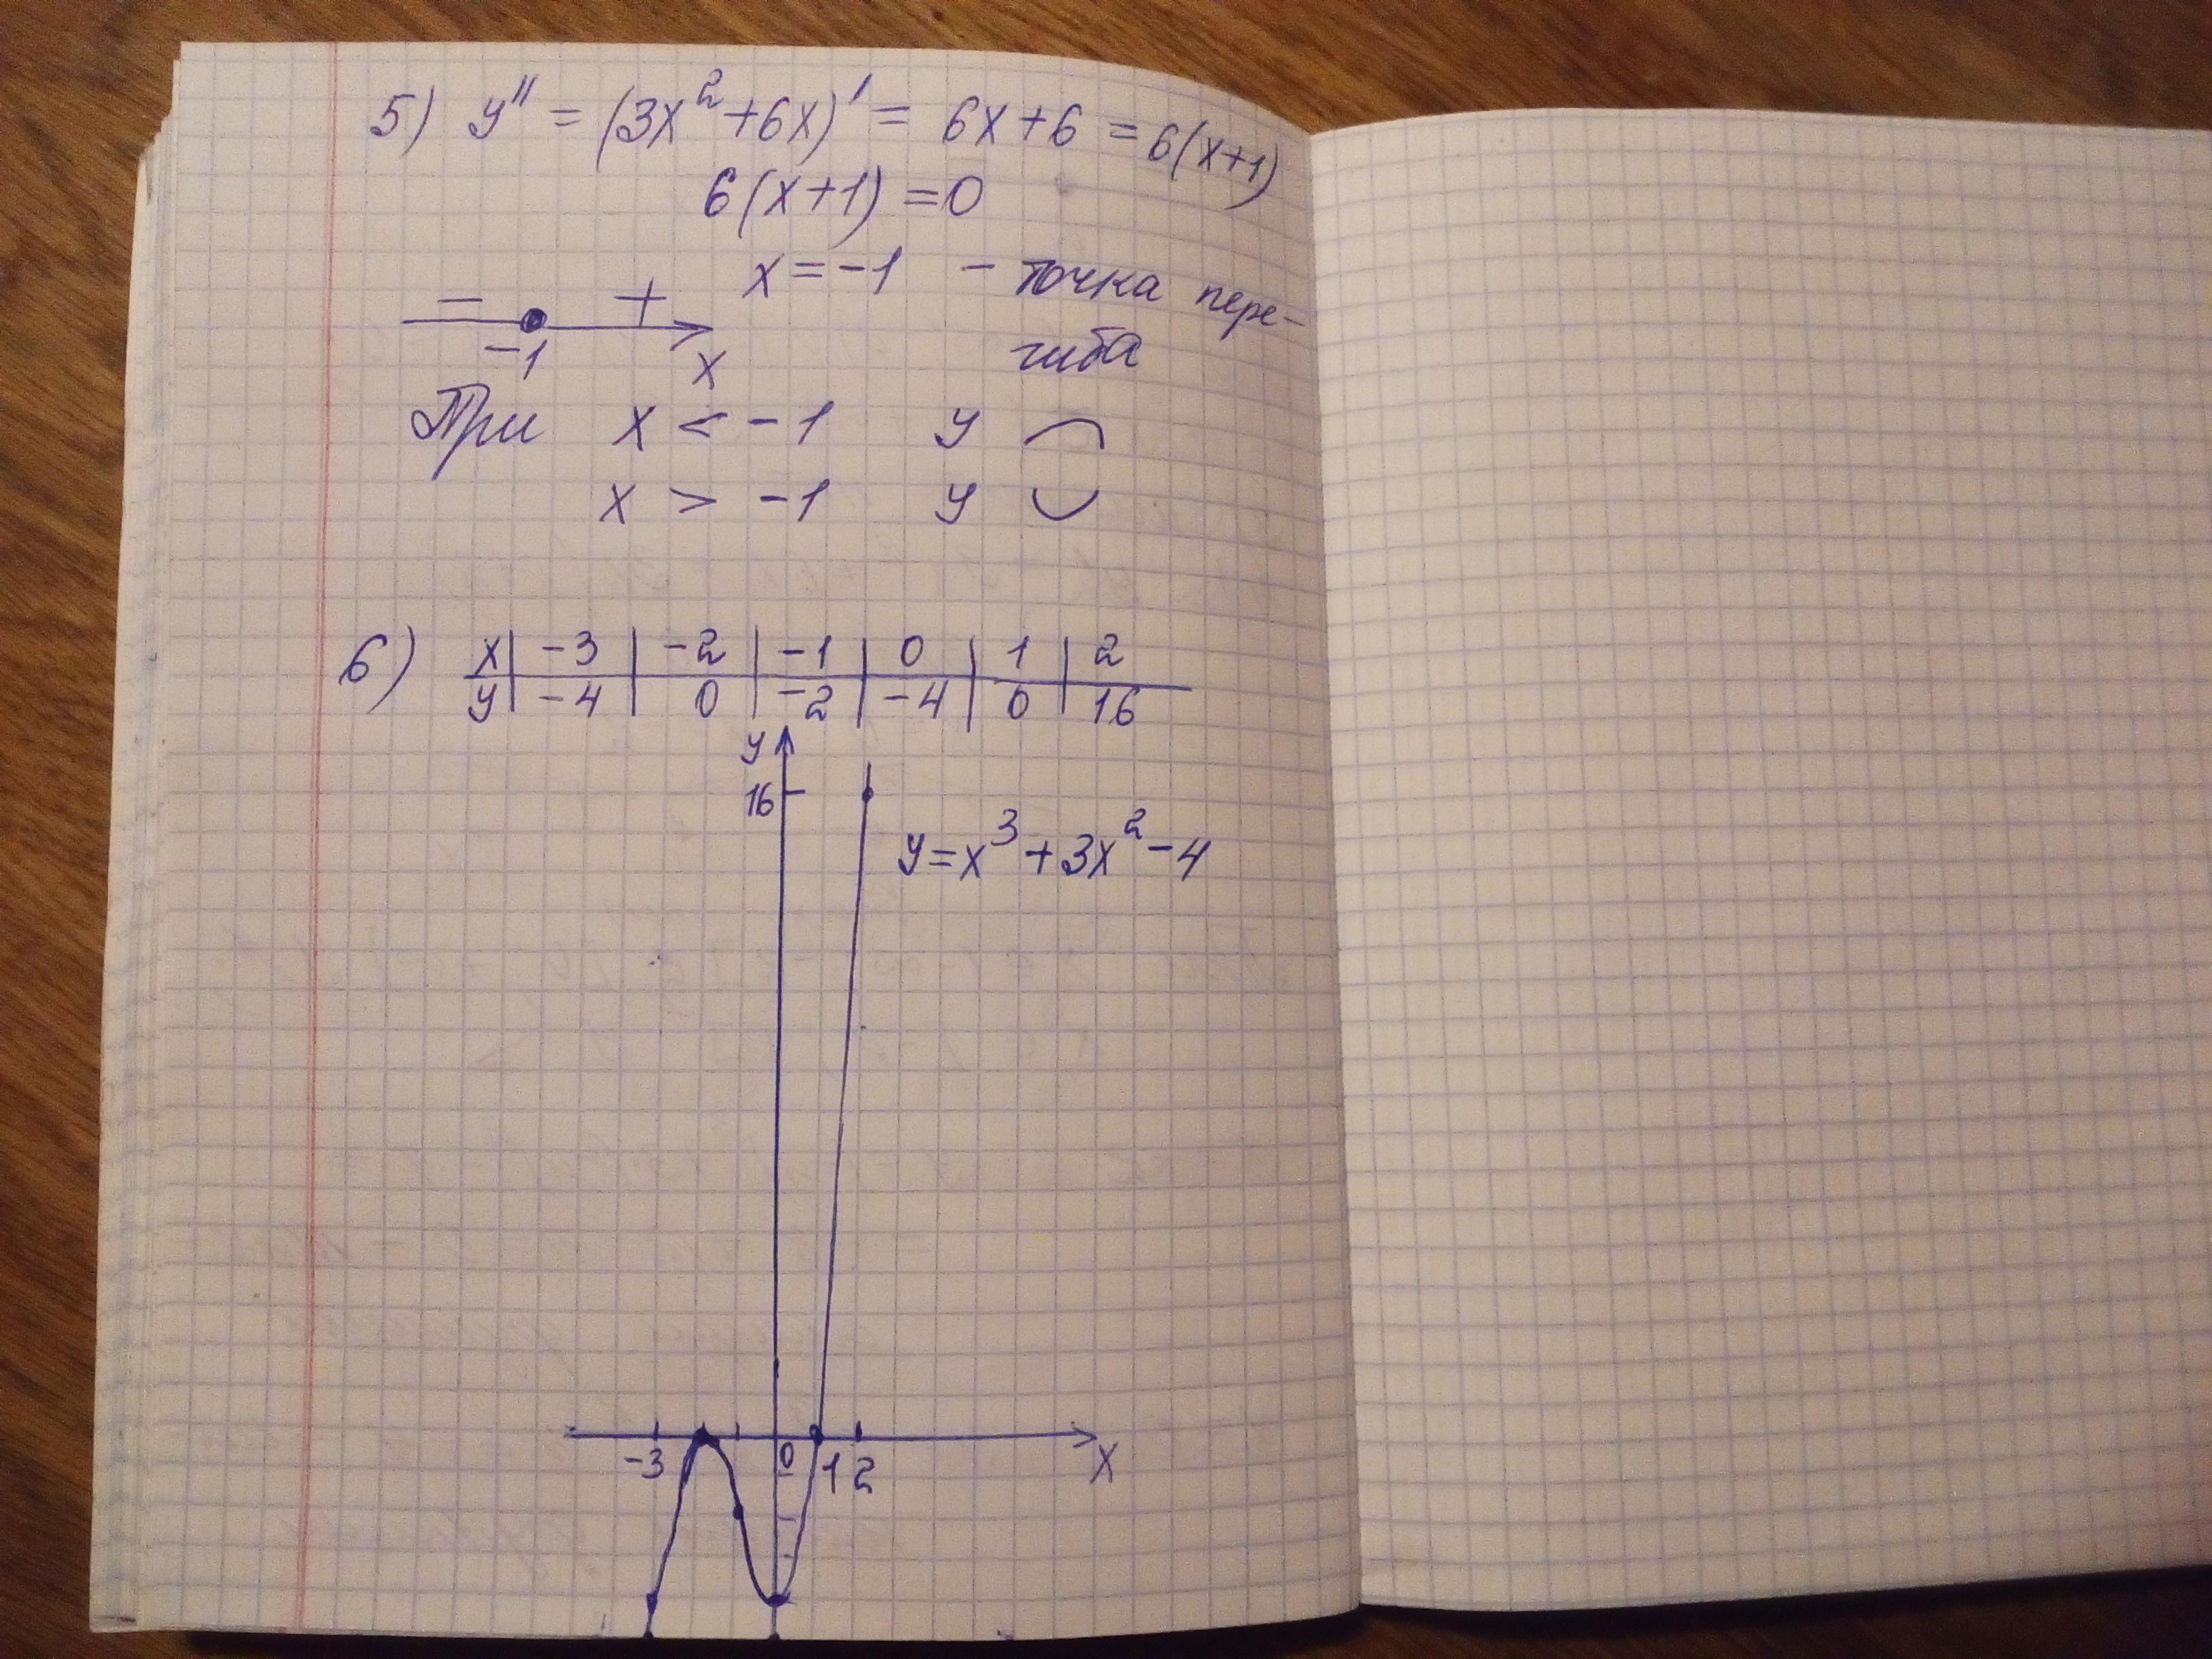 5) y'' = (3x² + 6x)' = 6x + 6 = 6(x+1)
6(x+1) = 0
x = -1 - точка пере-
гиба
- +
-1 x
При x < -1 y ⌒
x > -1 y ⌣
6) x | -3 | -2 | -1 | 0 | 1 | 2
y | -4 | 0 | -2 | -4 | 0 | 16
y
16
y = x³ + 3x² - 4
-3 0 1 2 x